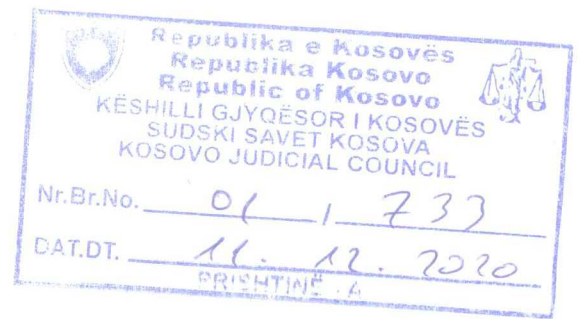 Republika e Kosovës
Republika Kosovo
Republic of Kosovo
KËSHILLI GJYQËSOR I KOSOVËS
SUDSKI SAVET KOSOVA
KOSOVO JUDICIAL COUNCIL
Nr.Br.No. 01 / 733
DAT.DT. 11. 12. 2020
PRISHTINË - A